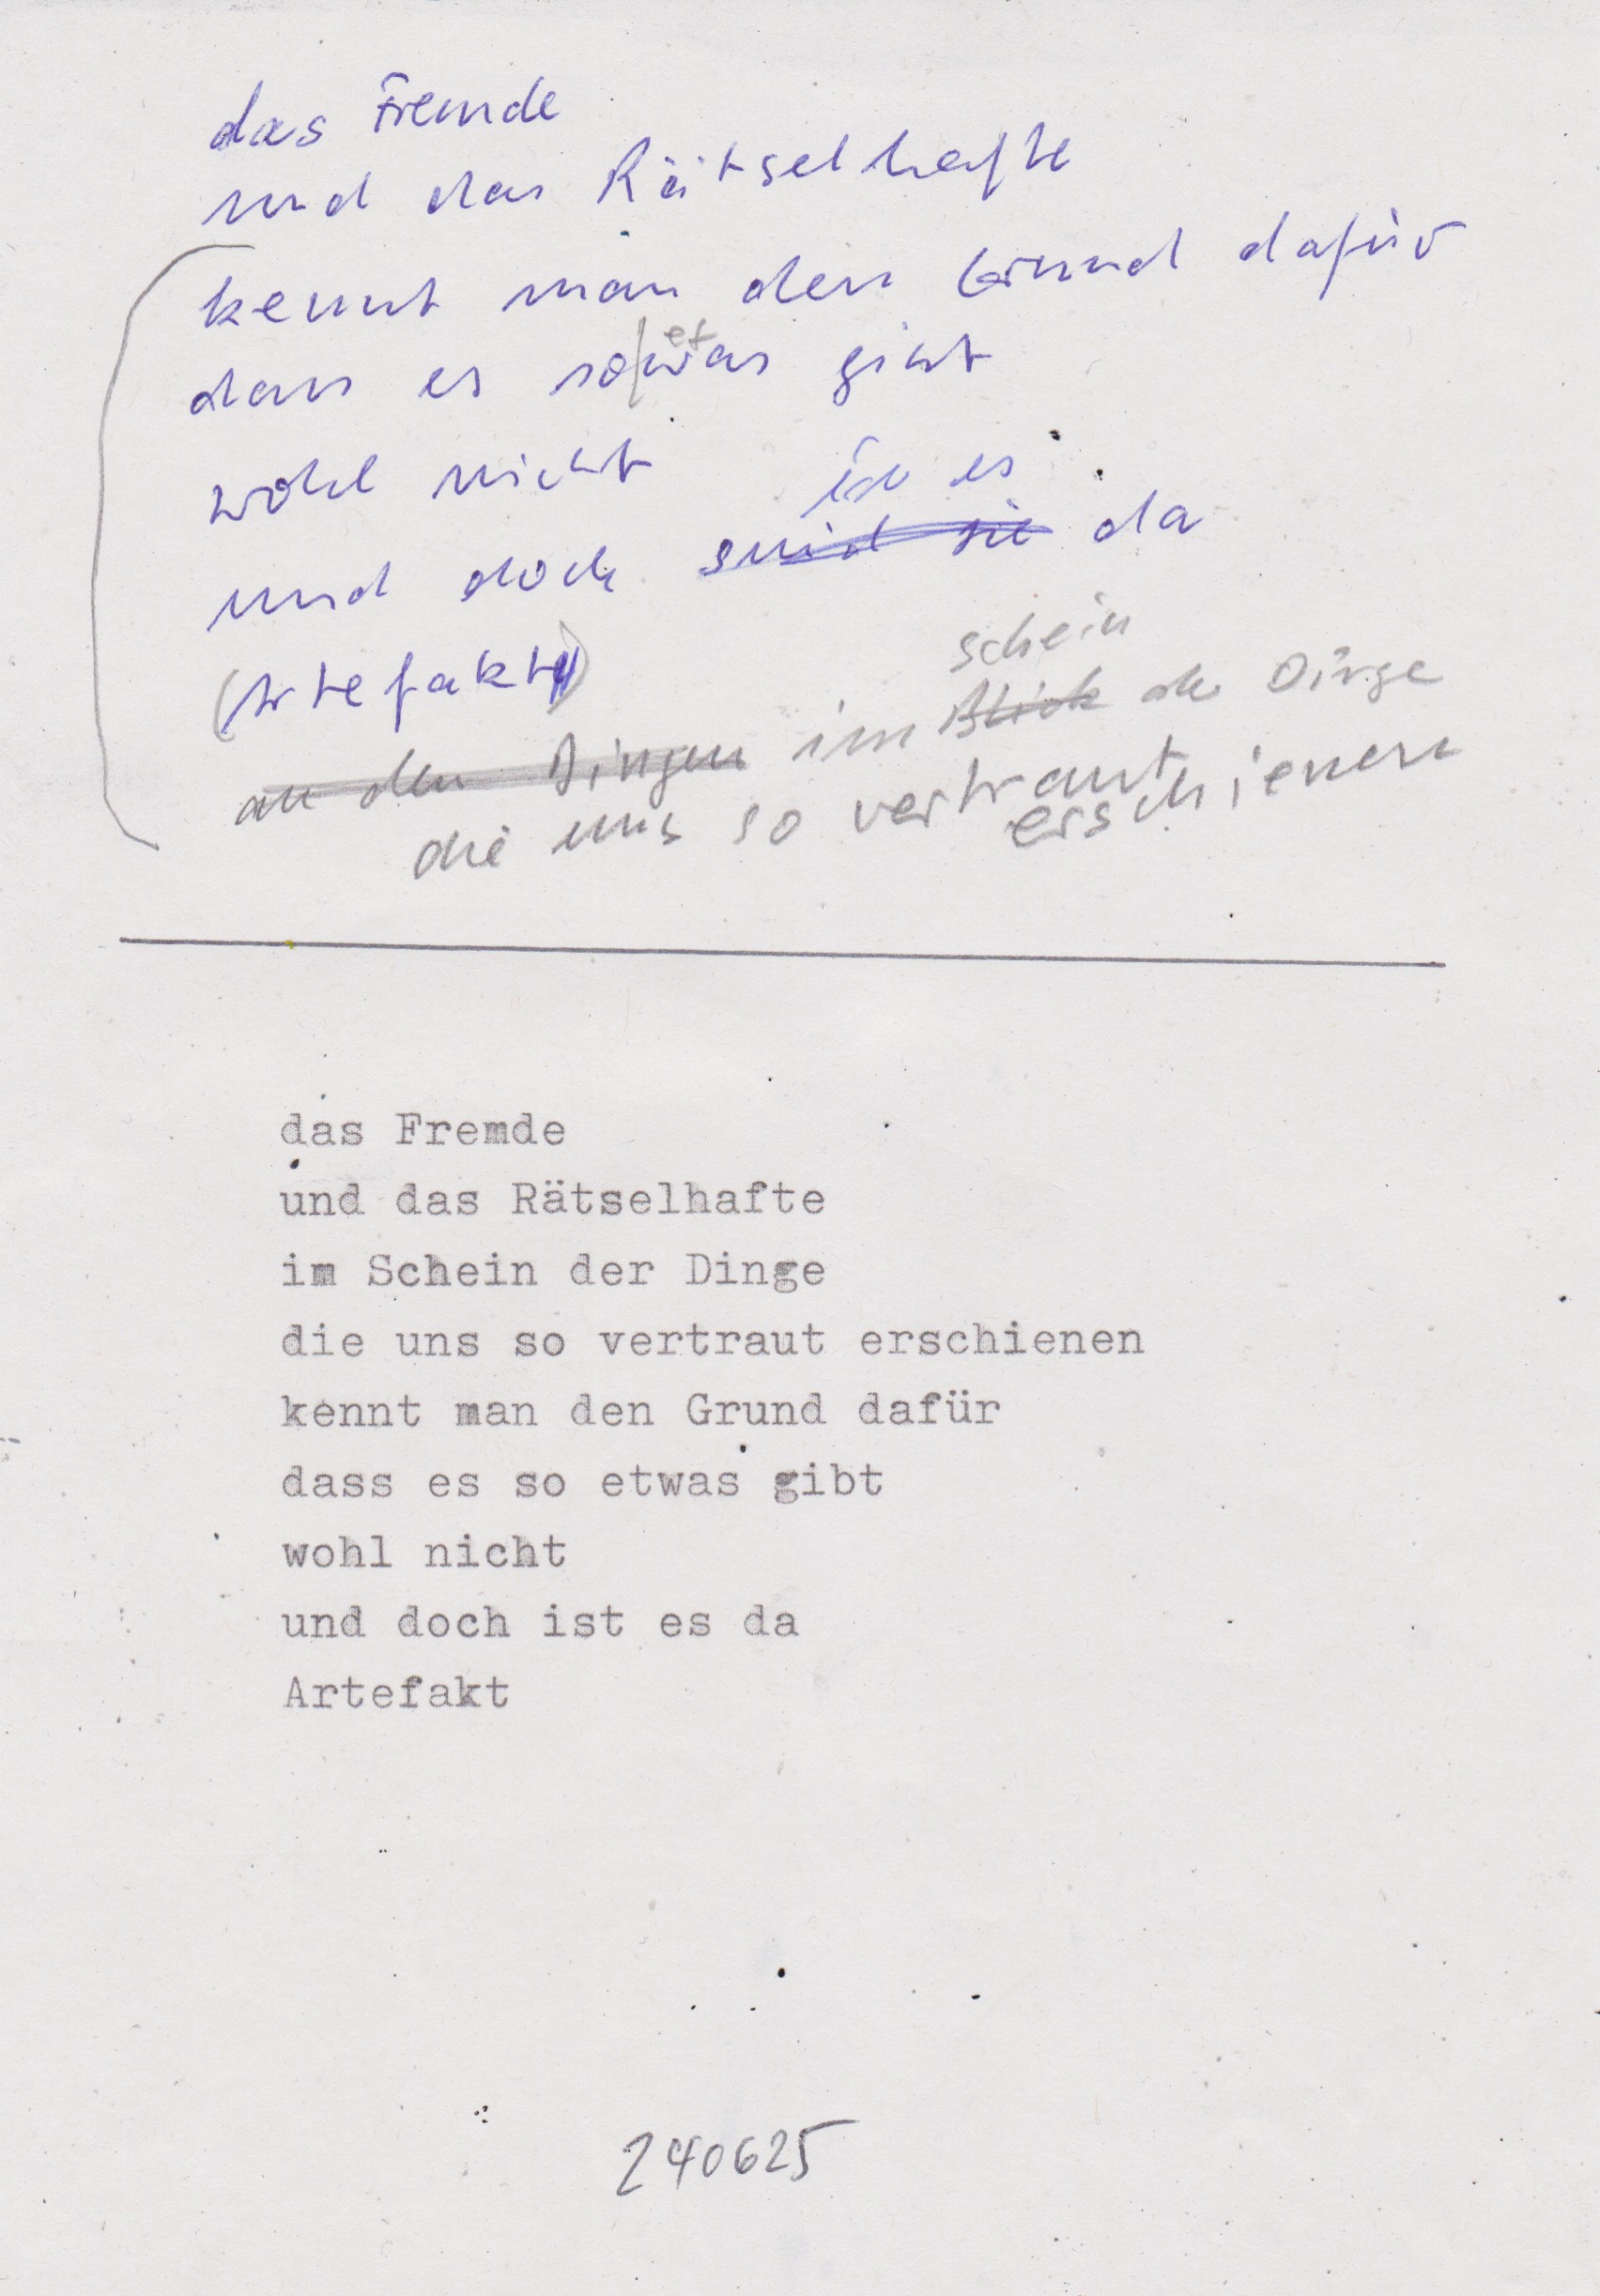 das Fremde
und das Rätselhafte
kennt man den Grund dafür
dass es so etwas gibt
wohl nicht
ist es
und doch sind sie da
(Artefakte)
schein
an den Dingen im Blick der Dinge
die uns so vertraut
erschienen
das Fremde
und das Rätselhafte
im Schein der Dinge
die uns so vertraut erschienen
kennt man den Grund dafür
dass es so etwas gibt
wohl nicht
und doch ist es da
Artefakt
240625